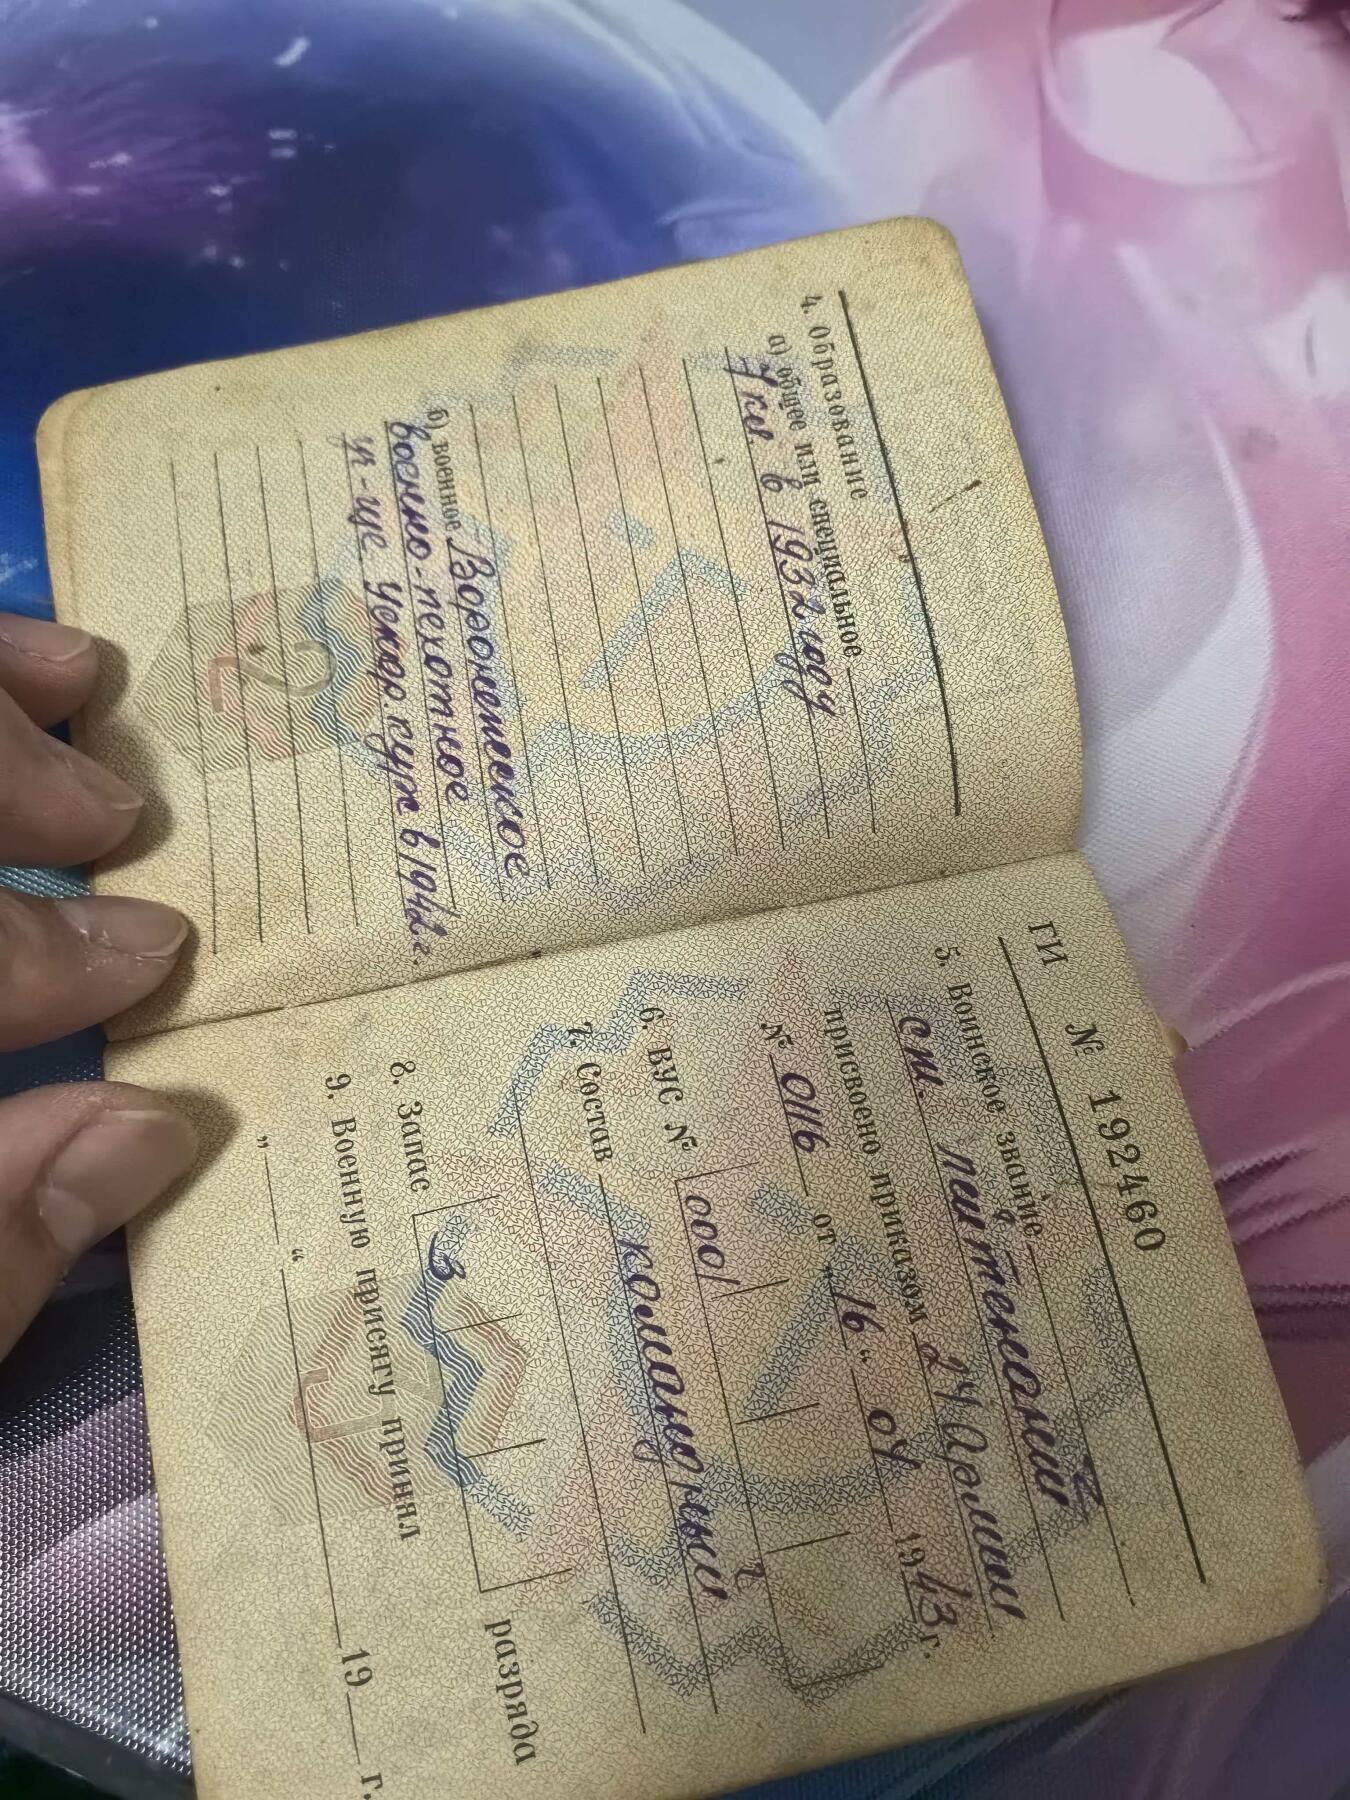 4. Образование
а) общее или специальное
7 кл. в 1932 году
б) военное Воронежское
военно-пехотное
уч-ще Ускор. курс в 1942 г.
ГИ № 192460
5. Воинское звание
ст. лейтенант
присвоено приказом 24 Армии
№ 0116 от „16“ 04 1943 г.
6. ВУС № 0001
7. Состав командный
8. Запас разряда
9. Военную присягу принял
„ “ 19 г.